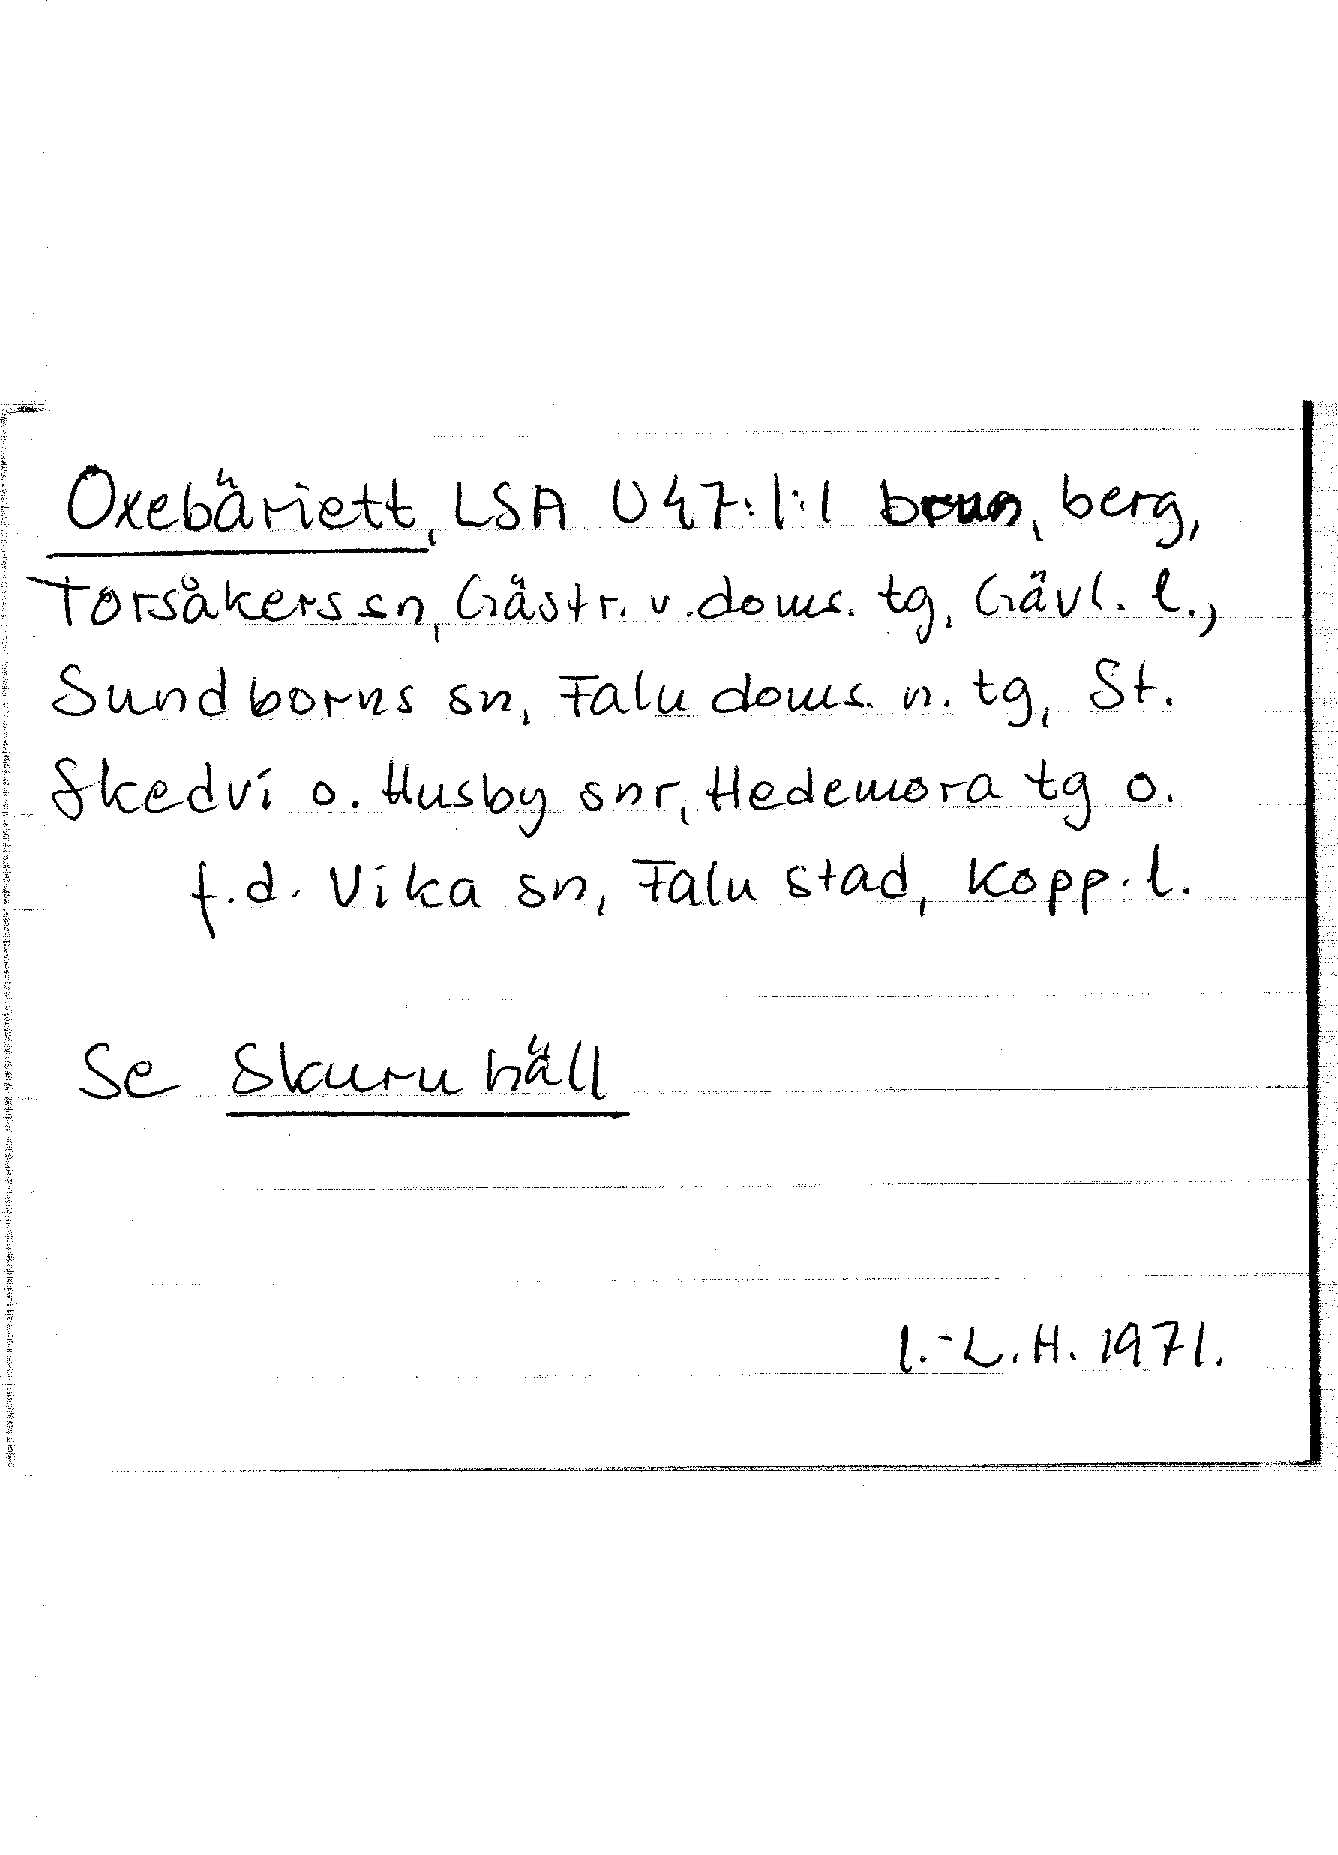 Oxebäriett, LSA U 47:1:1 brun, berg,
Torsåkers sn, Gästr. v. doms. tg, Gävl. l.,
Sundborns sn, Falu doms. n. tg, St.
Skedvi o. Husby snr, Hedemora tg o.
f.d. Vika sn, Falu stad, Kopp. l.
Se Skuru häll
I.-L.H. 1971.